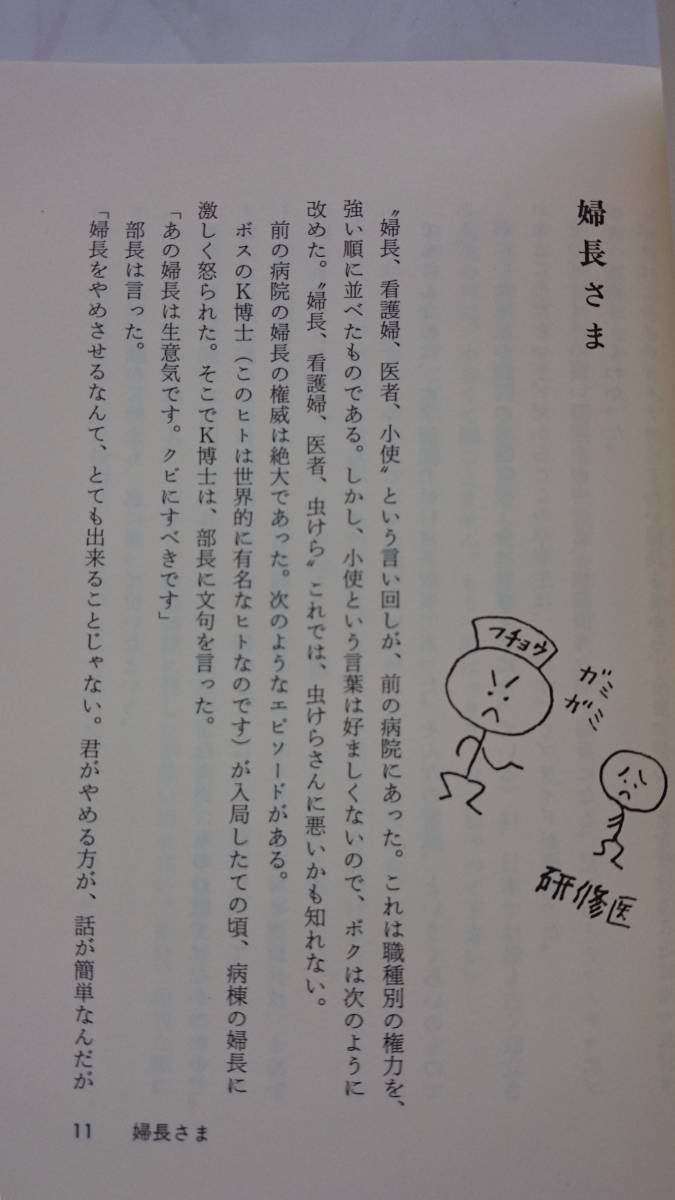 婦長さま
フチョウ
ガミ
ガミ
研修医
〝婦長、看護婦、医者、小使〟という言い回しが、前の病院にあった。これは職種別の権力を、
強い順に並べたものである。しかし、小使という言葉は好ましくないので、ボクは次のように
改めた。〝婦長、看護婦、医者、虫けら〟これでは、虫けらさんに悪いかも知れない。
前の病院の婦長の権威は絶大であった。次のようなエピソードがある。
ボスのK博士（このヒトは世界的に有名なヒトなのです）が入局したての頃、病棟の婦長に
激しく怒られた。そこでK博士は、部長に文句を言った。
「あの婦長は生意気です。クビにすべきです」
部長は言った。
「婦長をやめさせるなんて、とても出来ることじゃない。君がやめる方が、話が簡単なんだが
11 婦長さま